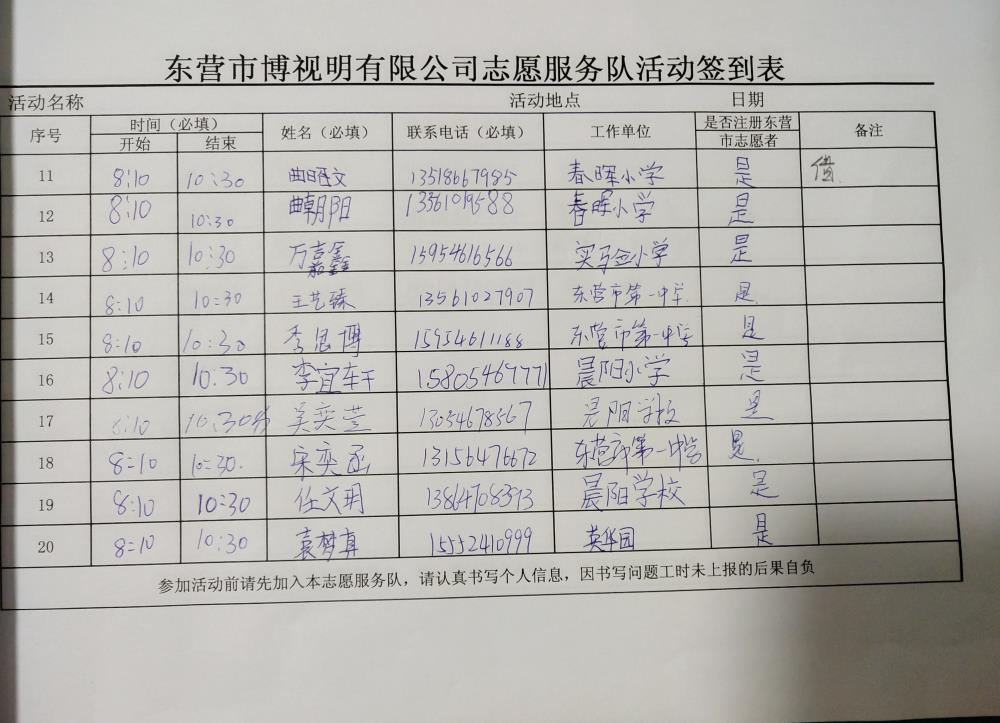 东营市博视明有限公司志愿服务队活动签到表
活动名称 活动地点 日期
序号 时间（必填） 姓名（必填） 联系电话（必填） 工作单位 是否注册东营市志愿者 备注
开始 结束
11 8:10 10:30 曲昭文 13518667985 春晖小学 是
12 8:10 10:30 曲朝阳 13361019588 春晖小学 是
13 8:10 10:30 万嘉鑫 15954616566 实验小学 是
14 8:10 10:30 王艺臻 13561027907 东营市第一中学 是
15 8:10 10:30 李思博 15954611188 东营市第一中学 是
16 8:10 10:30 李宜轩 15805467771 晨阳小学 是
17 8:10 10:30 吴奕萱 13054678567 晨阳学校 是
18 8:10 10:30. 宋奕函 13156476672 东营市第一中学 是.
19 8:10 10:30 任文玥 13864708373 晨阳学校 是
20 8:10 10:30 袁梦真 15552410999 英华园 是
参加活动前请先加入本志愿服务队，请认真书写个人信息，因书写问题工时未上报的后果自负